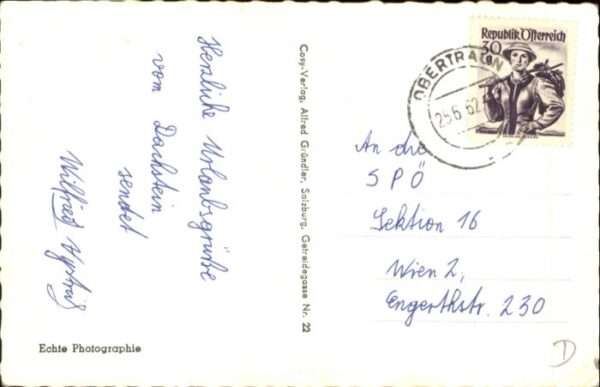 Herzliche Urlaubsgrüße
vom Dachstein
sendet
Wilfried
Cosy-Verlag, Alfred Gründler, Salzburg, Getreidegasse Nr. 22
Echte Photographie
Republik Österreich
30
OBERTRAUN
25.6.62
An die
SPÖ
Sektion 16
Wien 2,
Engerthstr. 230
D